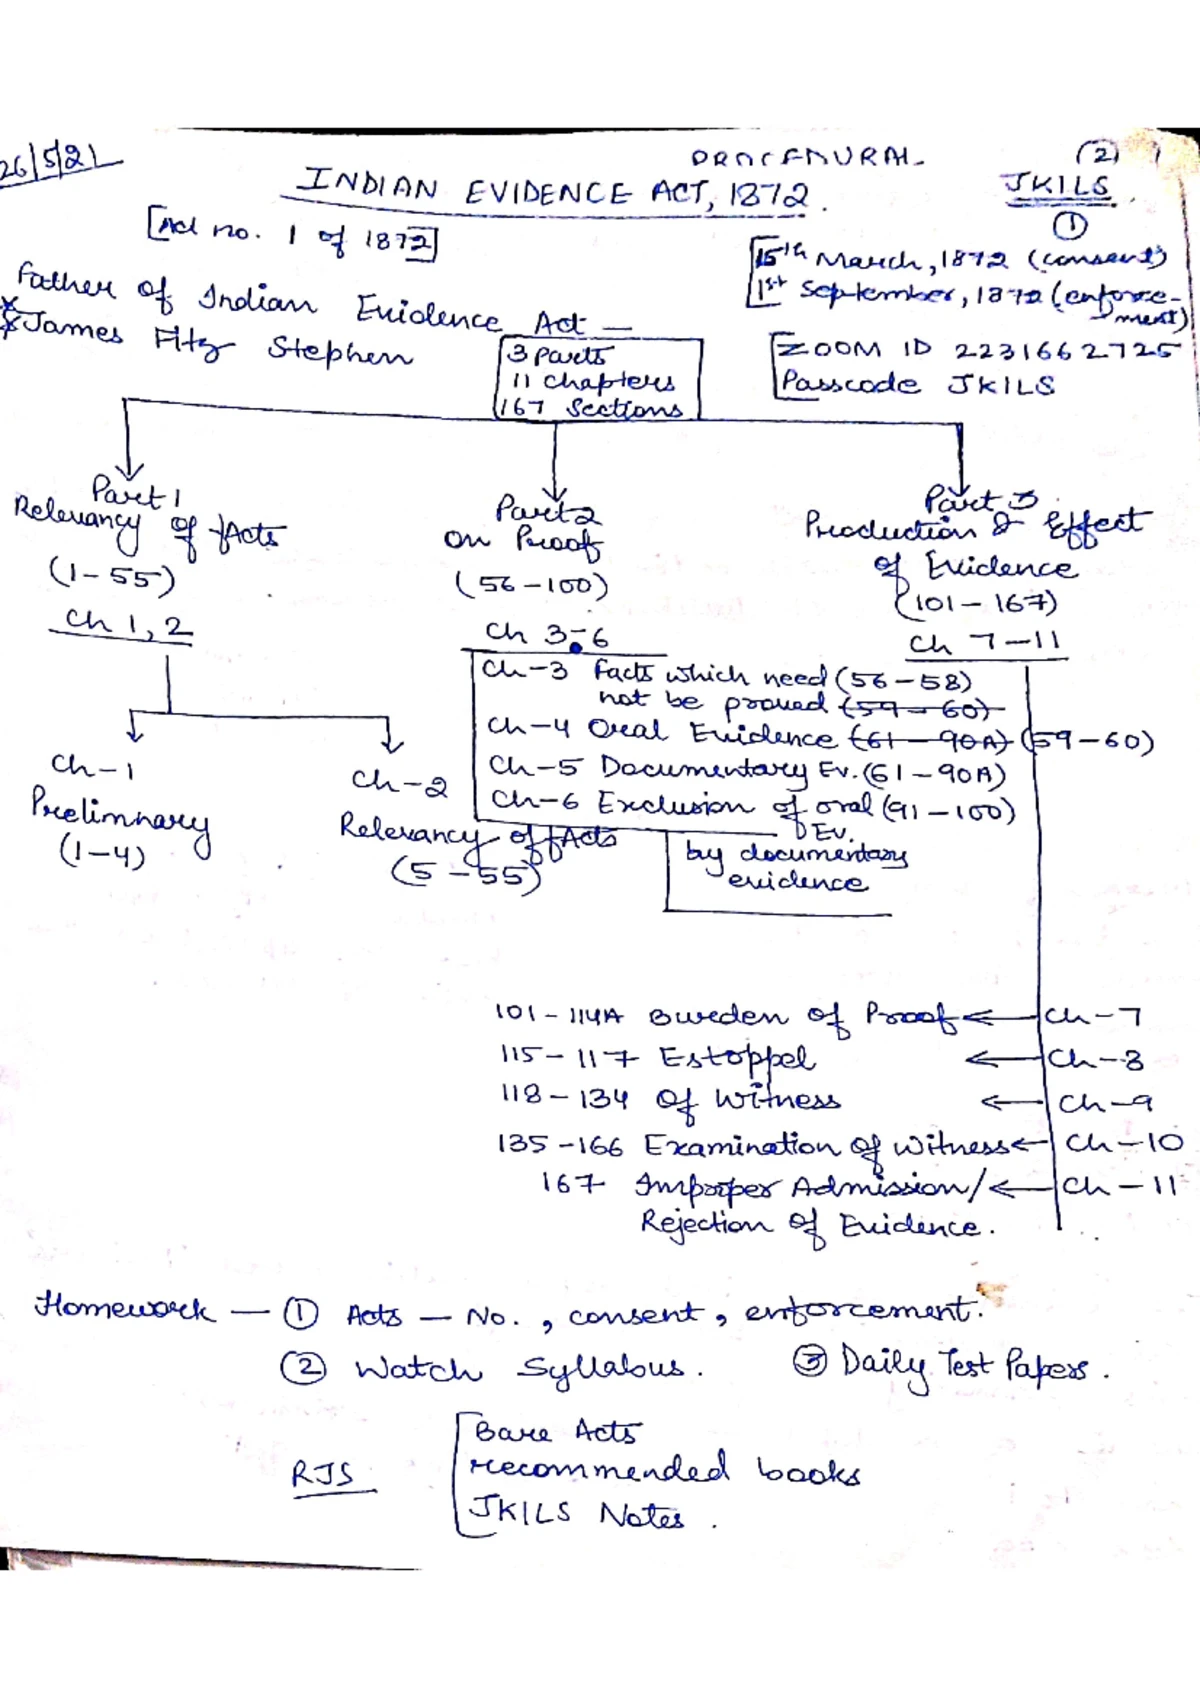 26/5/21
PROCEDURAL
(2)
INDIAN EVIDENCE ACT, 1872.
JKILS
①
[Act no. 1 of 1872]
15th March, 1872 (consent)
1st September, 1872 (enforce-
ment)
Father of Indian Evidence Act —
James Fitz Stephen
ZOOM ID 2231662725
Passcode JKILS
3 parts
11 chapters
167 Sections
Part 1
Relevancy of fActs
(1-55)
Ch 1, 2
Part 2
on Proof
(56-100)
Ch 3-6
Part 3
Production & Effect
of Evidence
(101-167)
Ch 7-11
Ch-3 facts which need (56-58)
not be proved (59-60)
Ch-4 Oral Evidence (61-90A) (59-60)
Ch-5 Documentary Ev. (61-90A)
Ch-6 Exclusion of oral (91-100)
Ev.
by documentary
evidence
Ch-1
Prelimnary
(1-4)
Ch-2
Relevancy of fActs
(5-55)
101-114A Burden of Proof ← Ch-7
115-117 Estoppel ← Ch-8
118-134 Of Witness ← Ch-9
135-166 Examination of Witness ← Ch-10
167 Improper Admission/ ← Ch-11
Rejection of Evidence.
Homework — ① Acts — No., consent, enforcement.
② Watch Syllabus. ③ Daily Test Papers.
RJS
Bare Acts
recommended books
JKILS Notes.